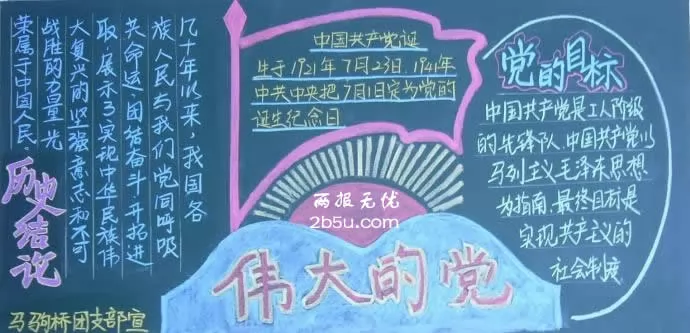 中国共产党诞
生于1921年7月23日,1941年
中共中央把7月1日定为党的
诞生纪念日
几十年以来,我国各
族人民与我们党同呼吸
共命运,团结奋斗,开拓进
取,展示了实现中华民族伟
大复兴的坚强意志和不可
战胜的力量,光
荣属于中国人民.
历史结论
党的目标
中国共产党是工人阶级
的先锋队,中国共产党以
马列主义毛泽东思想
为指南,最终目标是
实现共产主义的
社会制度
两报无优
2b5u.com
伟大的党
马驹桥团支部宣